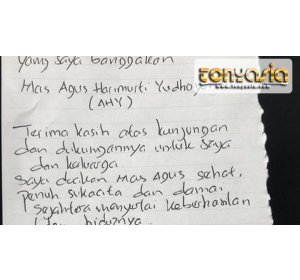 yang saya banggakan
TONYASIA
Mas Agus Harimurti Yudho
(AHY)
Terima kasih atas kunjungan
dan dukungannya untuk saya
dan keluarga.
Saya doakan Mas Agus sehat,
penuh sukacita dan damai
sejahtera menyertai keberhasilan
hidupnya.